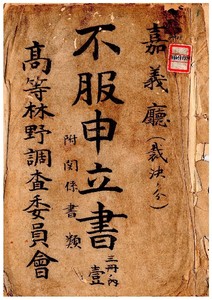 嘉義廳(裁決ノ分)
不服申立書
附関係書類
三冊ノ内
壹
高等林野調査委員會